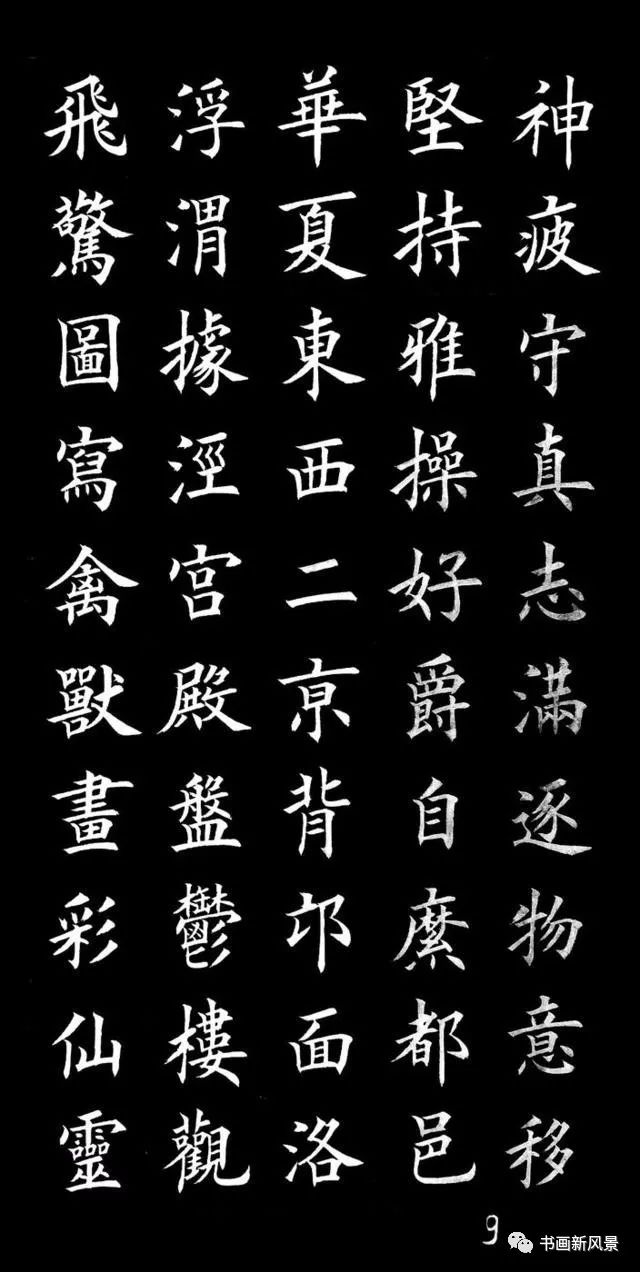 神疲守真志滿逐物意移
堅持雅操好爵自縻都邑
華夏東西二京背邙面洛
浮渭據涇宮殿盤鬱樓觀
飛驚圖寫禽獸畫彩仙靈
9
书画新风景